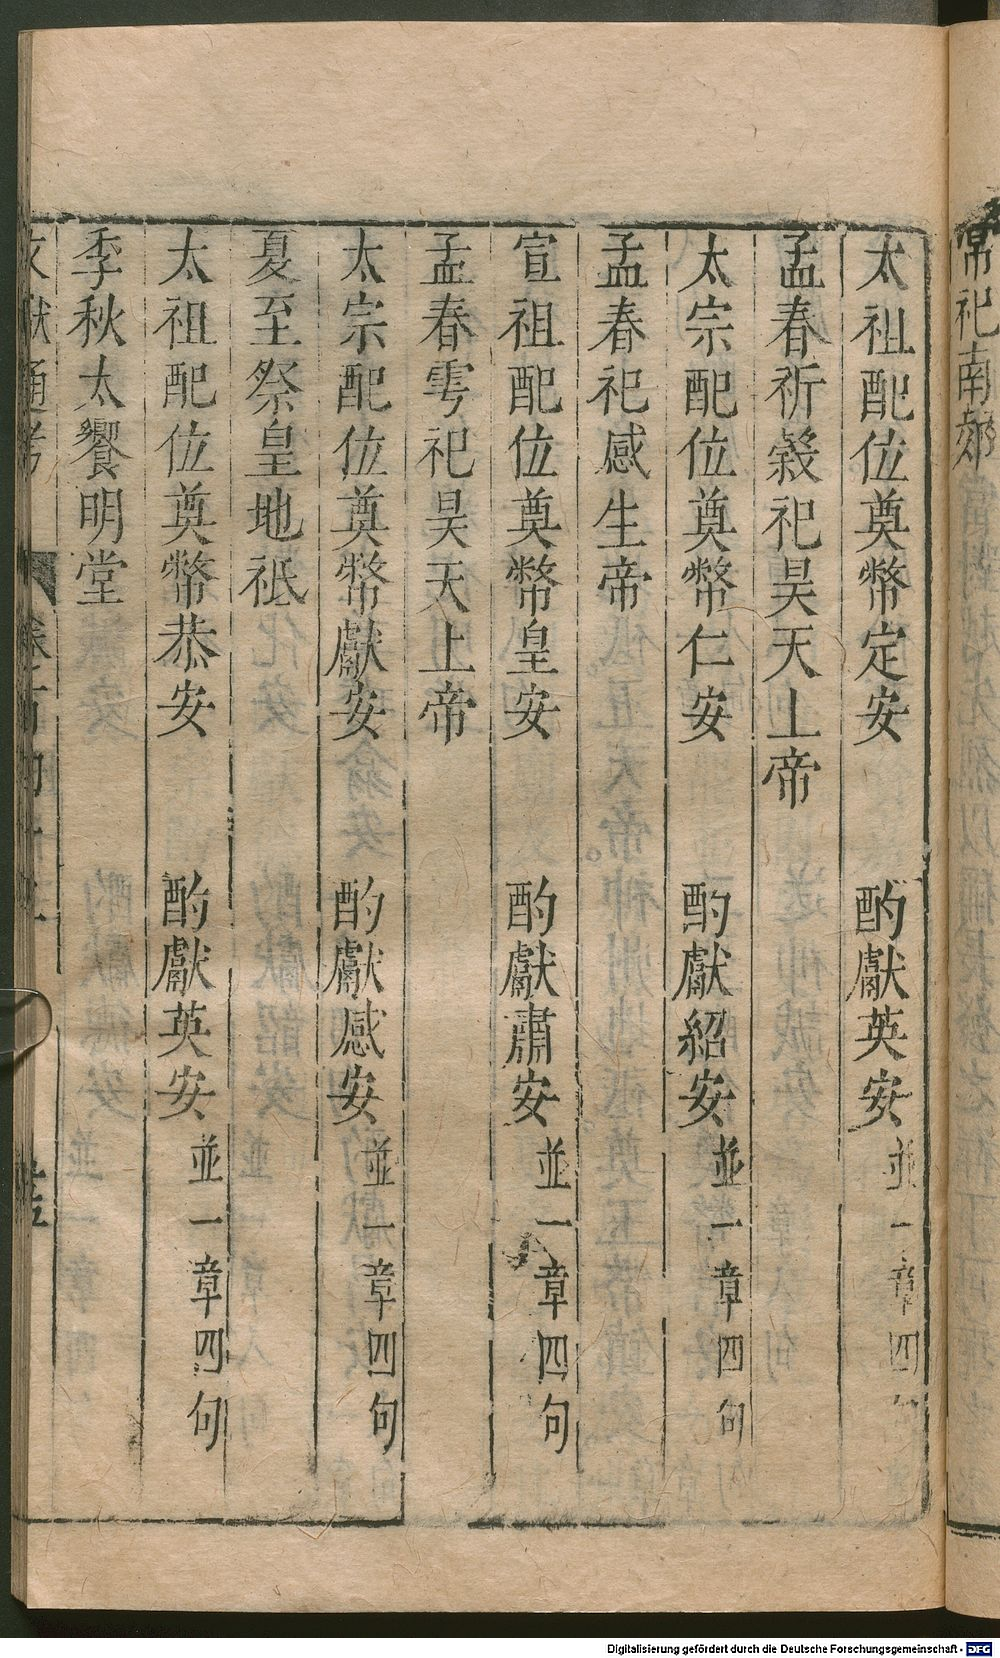 常祀南郊
太祖配位奠幣定安　酌獻英安並一章四句
孟春祈穀祀昊天上帝
太宗配位奠幣仁安　酌獻紹安並一章四句
孟春祀感生帝
宣祖配位奠幣皇安　酌獻肅安並一章四句
孟春雩祀昊天上帝
太宗配位奠幣獻安　酌獻感安並一章四句
夏至祭皇地祇
太祖配位奠幣恭安　酌獻英安並一章四句
季秋太饗明堂
文獻通考
Digitalisierung gefördert durch die Deutsche Forschungsgemeinschaft - DFG